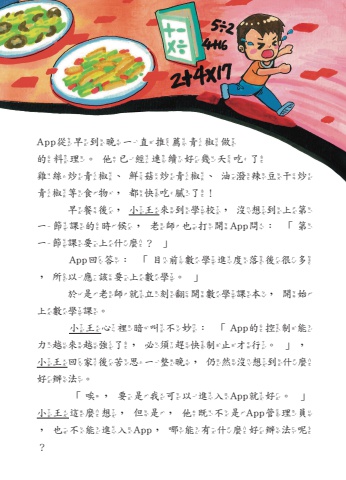 5÷2
4+6
+ -
× ÷
2+4×17
App從早到晚一直推薦青椒做
的料理。他已經連續好幾天吃了
雞絲炒青椒、鮮菇炒青椒、油潑辣豆干炒
青椒等食物,都快吃膩了!
早餐後,小王來到學校,沒想到上第
一節課的時候,老師也打開App問:「第
一節課要上什麼?」
App回答:「目前數學進度落後很多
,所以應該要上數學。」
於是老師就立刻翻開數學課本,開始
上數學課。
小王心裡暗叫不妙:「App的控制能
力越來越強了,必須趕快制止才行。」,
小王回家後苦思一整晚,仍然沒想到什麼
好辦法。
「唉,要是我可以進入App就好。」
小王這麼想,但是,他既不是App管理員
,也不能進入App,哪能有什麼好辦法呢
?